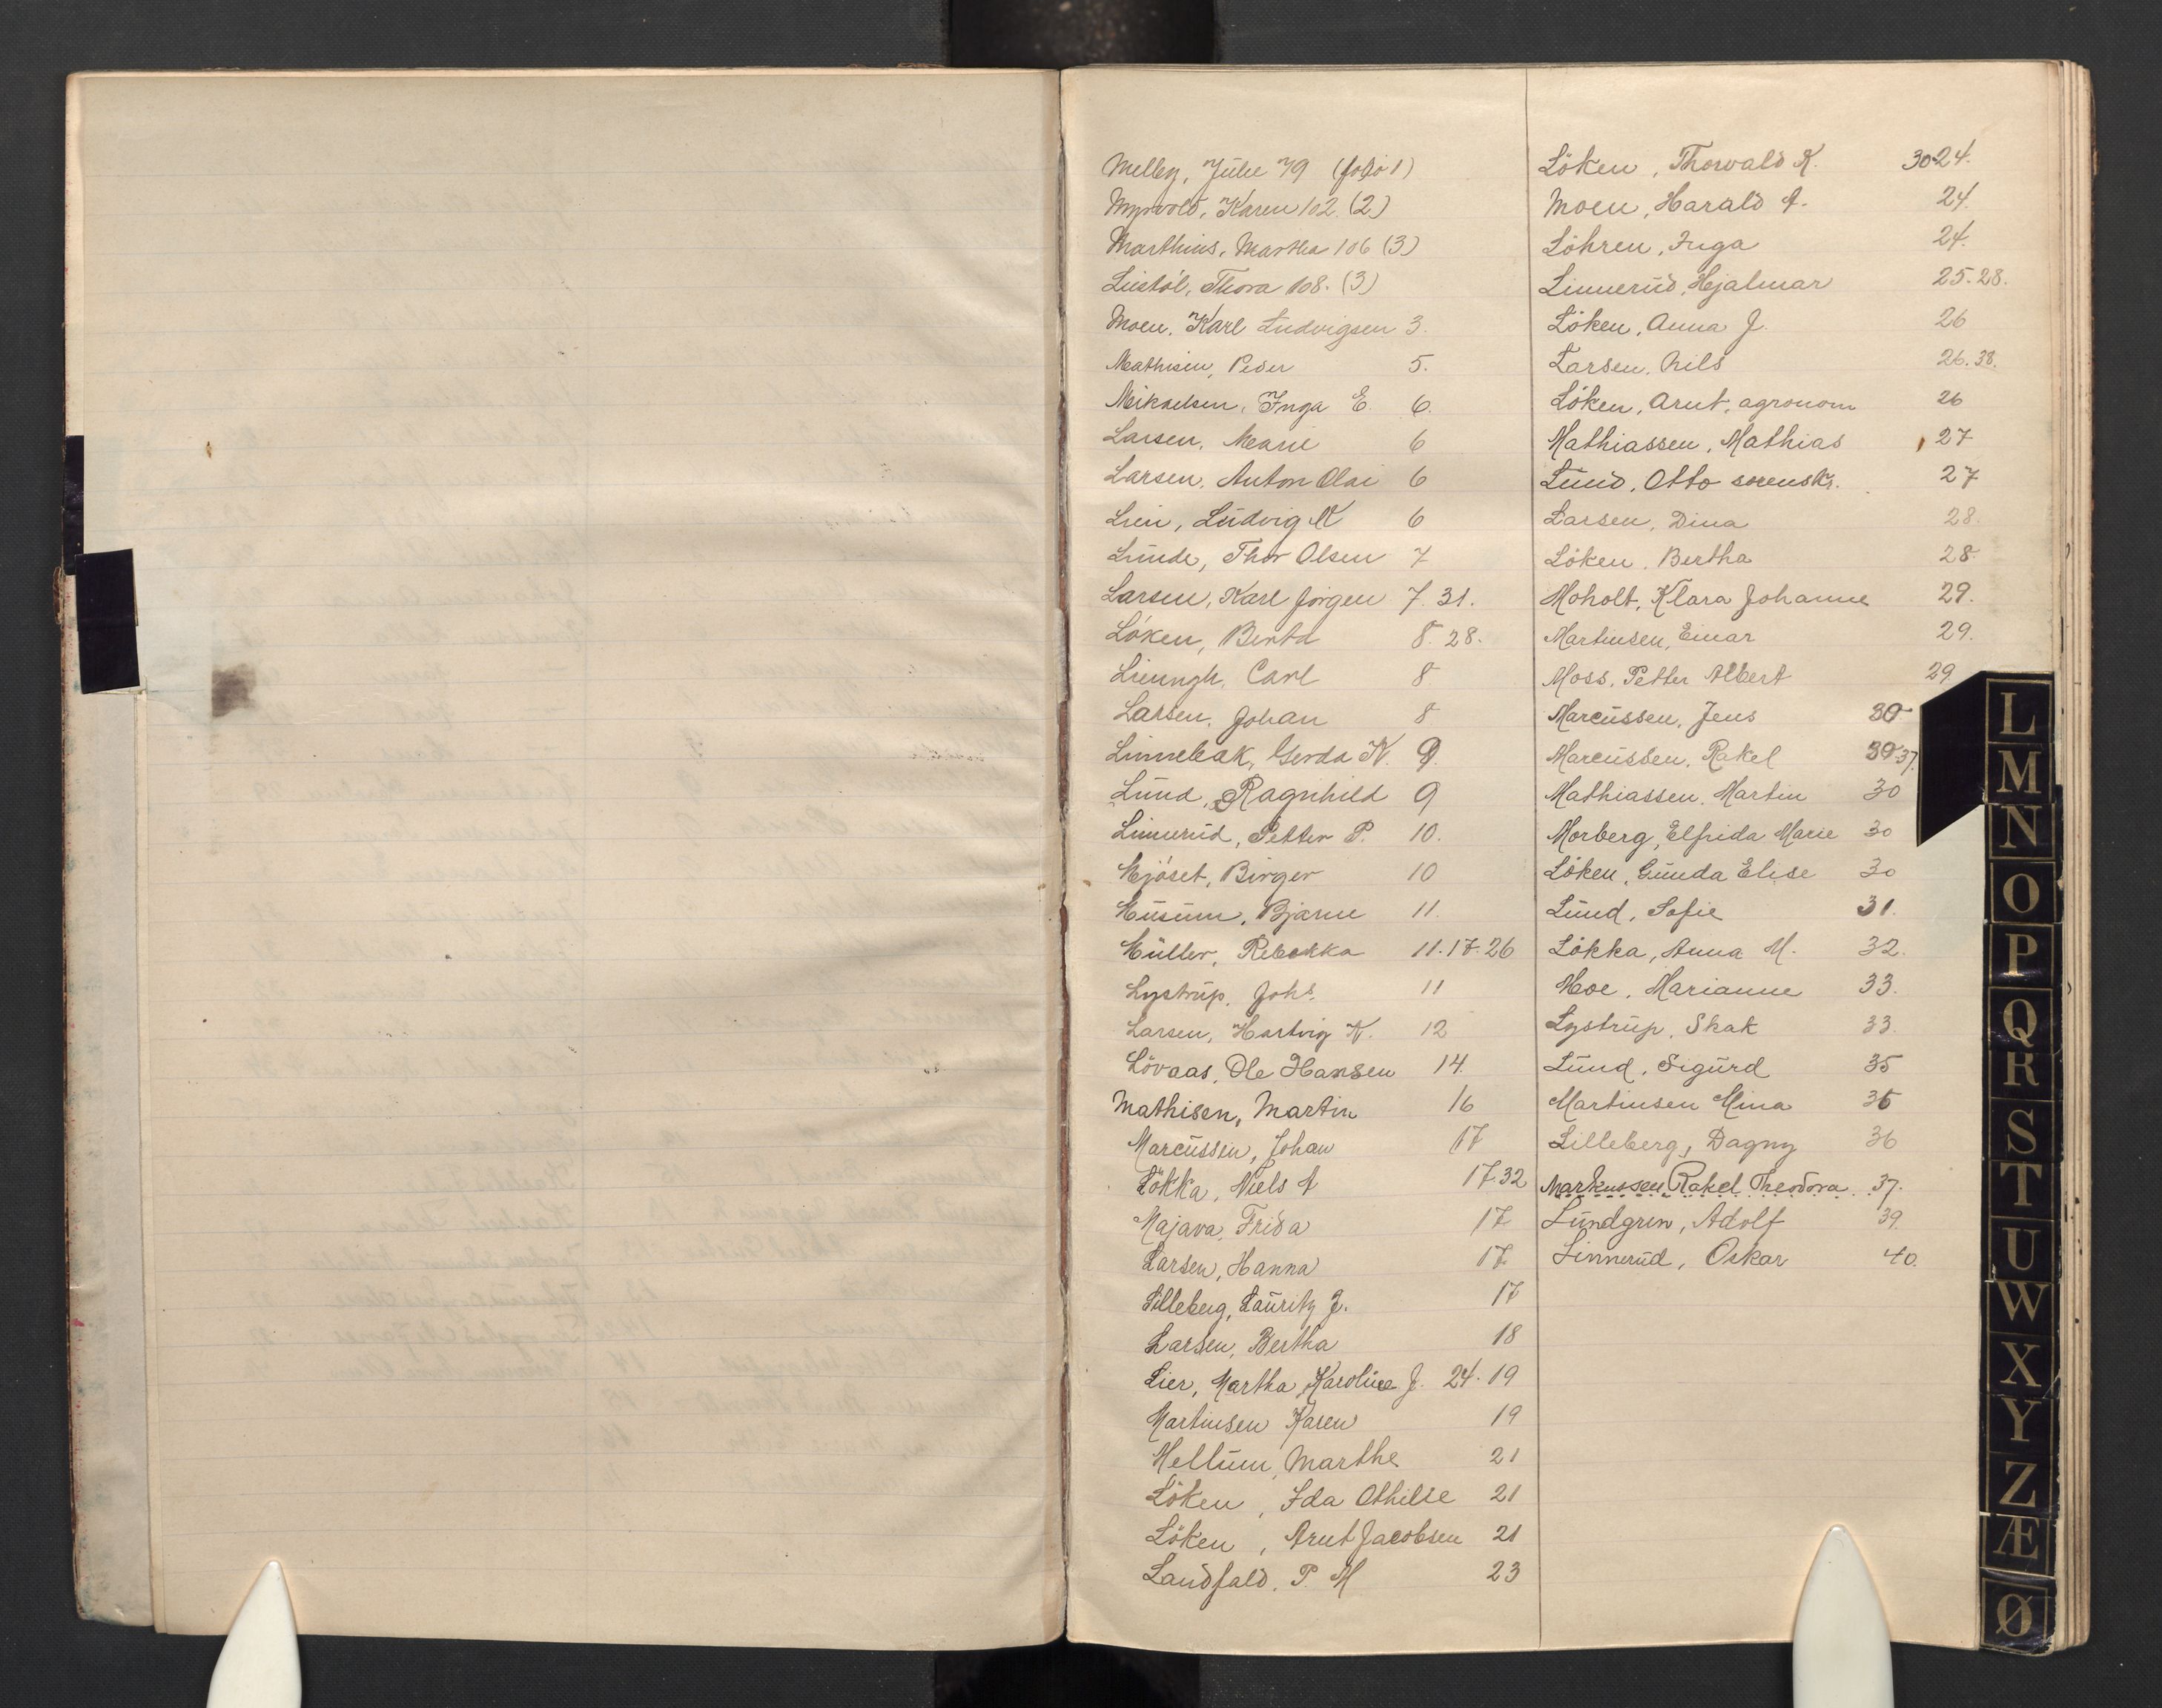 Melby, Julie 79 (folio 1)
Myrvold, Karen 102 (2)
Marthins, Martha 106 (3)
Liestöl, Thora 108. (3)
Moen, Karl Ludvigsen 3.
Mathisen, Peder 5.
Mikaelsen, Inga E. 6.
Larsen, Marie 6
Larsen, Anton Olai 6
Lien, Ludvig K 6
Lunde, Thor Olsen 7
Larsen, Karl Jörgen 7. 31.
Löken, Berta 8. 28.
Lieungh, Carl 8
Larsen, Johan 8
Linnebak, Gerda N. 9.
Lund, Ragnhild 9
Linnerud, Petter P. 10.
Mjöset, Birger 10
Musum, Bjarne 11.
Müller, Rebekka 11. 17. 26
Lystrup, Johs. 11
Larsen, Hartvig N. 12
Lövaas, Ole Hansen 14.
Mathisen, Martin 16
Marcussen, Johan 17
Lökka, Niels A 17. 32
Majava, Frida 17
Larsen, Hanna 17.
Lilleberg, Lauritz J. 17
Larsen, Bertha 18
Lier, Martha Karoline J. 24. 19
Martinsen Karen 19
Mellum, Marthe 21
Löken, Ida Othilie 21
Löken, Arnt Jacobsen 21
Landfald, P. M 23
Löken, Thorvald K. 30 24.
Moen, Harald A. 24
Löhren, Inga 24.
Linnerud, Hjalmar 25. 28.
Löken, Anna J. 26
Larsen, Nils 26. 38.
Löken, Arnt, agronom 26
Mathiassen, Mathias 27
Lund, Otto sorenskr. 27
Larsen, Dina 28.
Löken, Bertha 28
Moholt, Klara Johanne 29.
Martinsen, Einar 29.
Moss, Petter Albert 29
Marcussen, Jens 30
Marcussen, Rakel 30 37.
Mathiassen, Martin 30
Morberg, Elfrida Marie 30
Löken, Gunda Elise 30
Lund, Sofie 31.
Lökka, Anna M. 32.
Moe, Marianne 33.
Lystrup, Skak 33.
Lund, Sigurd 35
Martinsen Mina 36
Lilleberg, Dagny 36
Markussen, Rakel Theodora 37.
Lundgren, Adolf 39.
Linnerud, Oskar 40.
L
M
N
O
P
Q
R
S
T
U
W
X
Y
Z
Æ
Ø